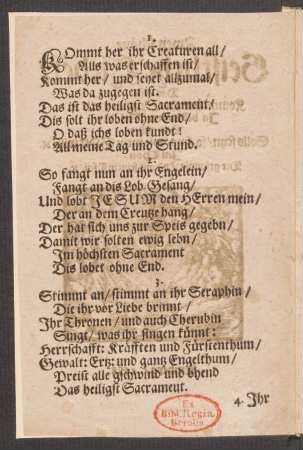 1.
KOmmt her ihr Creaturen all/
Alls was erschaffen ist/
Kommt her/ und seyet allzumal/
Was da zugegen ist.
Das ist das heiligst Sacrament/
Dis solt ihr loben ohne End/
O daß ichs loben kundt!
All meine Tag und Stund.
2.
So fangt nun an ihr Engelein/
Fangt an dis Lob-Gesang/
Und lobt JESUM den HErren mein/
Der an dem Creutze hang/
Der hat sich uns zur Speis gegebn/
Damit wir solten ewig lebn/
Im höchsten Sacrament
Dis lobet ohne End.
3.
Stimmt an/ stimmt an ihr Seraphin/
Die ihr vor Liebe brinnt/
Ihr Thronen/ und auch Cherubin
Singt/ was ihr singen künnt:
Herrschafft: Kräfften und Fürstenthum/
Gewalt: Ertz: und gantz Engelthum/
Preist alle gschwind und bhend
Das heiligst Sacrament.
4. Ihr
Ex
Bibl. Regia
Berolin